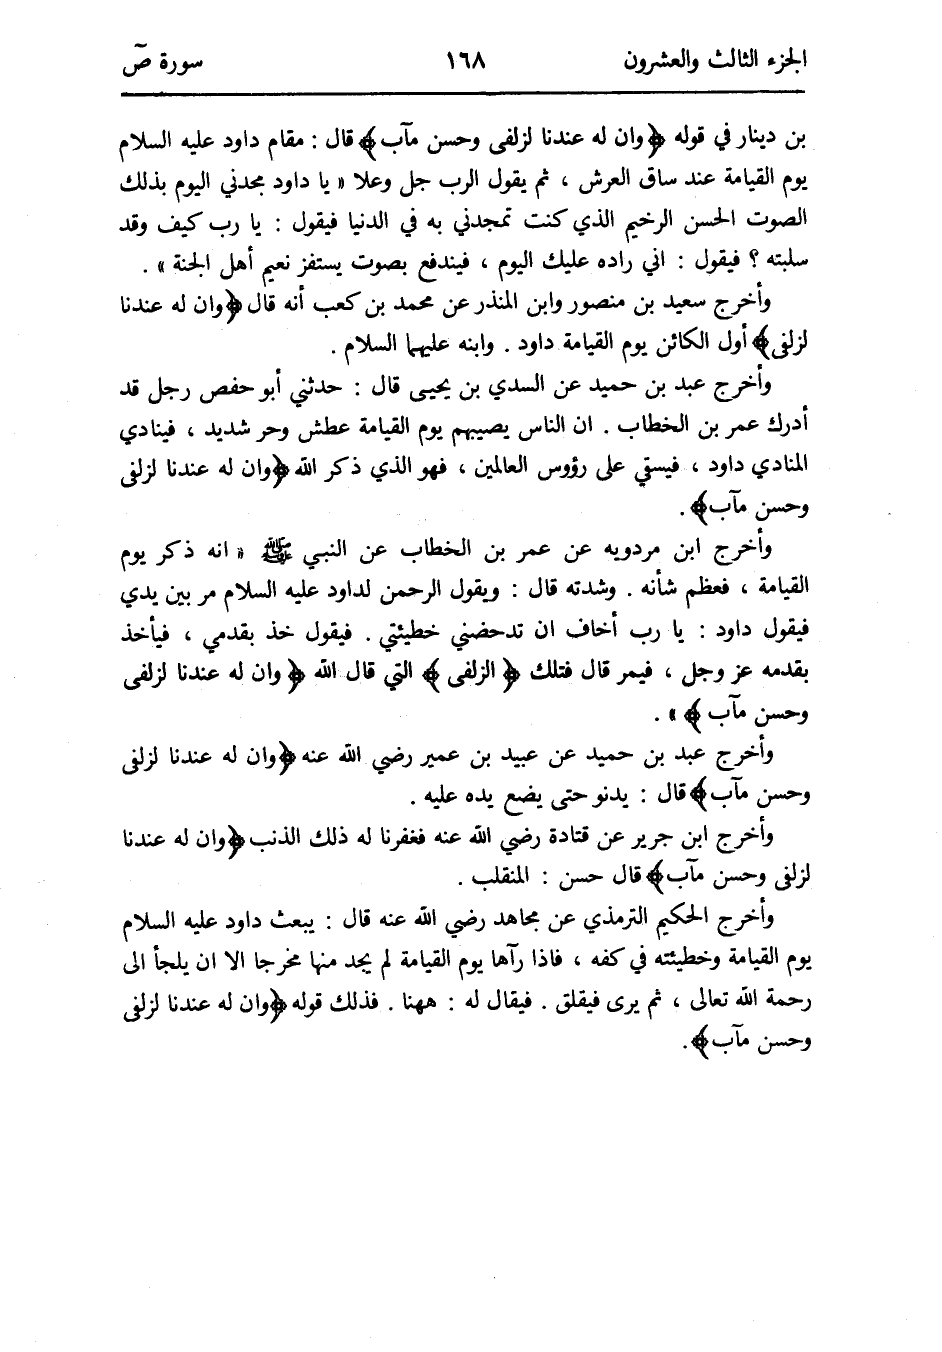 الجزء الثالث والعشرون ١٦٨ سورة صٓ
بن دينار في قوله ﴿وان له عندنا لزلفى وحسن مآب﴾ قال : مقام داود عليه السلام
يوم القيامة عند ساق العرش ، ثم يقول الرب جل وعلا « يا داود مجدني اليوم بذلك
الصوت الحسن الرخيم الذي كنت تمجدني به في الدنيا فيقول : يا رب كيف وقد
سلبته ؟ فيقول : اني راده عليك اليوم ، فيندفع بصوت يستفز نعيم أهل الجنة » .
وأخرج سعيد بن منصور وابن المنذر عن محمد بن كعب أنه قال ﴿وان له عندنا
لزلفى﴾ أول الكائن يوم القيامة داود . وابنه عليهما السلام .
وأخرج عبد بن حميد عن السدي بن يحيى قال : حدثني أبو حفص رجل قد
أدرك عمر بن الخطاب . ان الناس يصيبهم يوم القيامة عطش وحر شديد ، فينادي
المنادي داود ، فيسقي على رؤوس العالمين ، فهو الذي ذكر الله ﴿وان له عندنا لزلفى
وحسن مآب﴾ .
وأخرج ابن مردويه عن عمر بن الخطاب عن النبي ﷺ « انه ذكر يوم
القيامة ، فعظم شأنه . وشدته قال : ويقول الرحمن لداود عليه السلام مر بين يدي
فيقول داود : يا رب أخاف ان تدحضني خطيئتي . فيقول خذ بقدمي ، فيأخذ
بقدمه عز وجل ، فيمر قال فتلك ﴿ الزلفى ﴾ التي قال الله ﴿ وان له عندنا لزلفى
وحسن مآب ﴾ » .
وأخرج عبد بن حميد عن عبيد بن عمير رضي الله عنه ﴿وان له عندنا لزلفى
وحسن مآب﴾ قال : يدنو حتى يضع يده عليه .
وأخرج ابن جرير عن قتادة رضي الله عنه فغفرنا له ذلك الذنب ﴿وان له عندنا
لزلفى وحسن مآب﴾ قال حسن : المنقلب .
وأخرج الحكيم الترمذي عن مجاهد رضي الله عنه قال : يبعث داود عليه السلام
يوم القيامة وخطيئته في كفه ، فاذا رآها يوم القيامة لم يجد منها مخرجا الا ان يلجأ الى
رحمة الله تعالى ، ثم يرى فيقلق . فيقال له : ههنا . فذلك قوله ﴿وان له عندنا لزلفى
وحسن مآب﴾ .